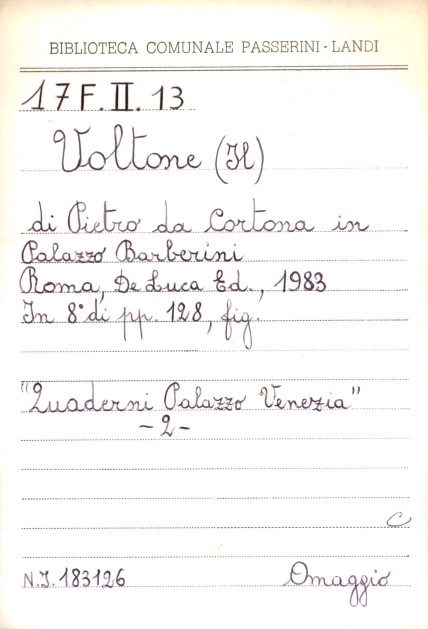 BIBLIOTECA COMUNALE PASSERINI-LANDI
17 F. II. 13
Voltone (Il)
di Pietro da Cortona in
Palazzo Barberini
Roma, De Luca Ed., 1983
In 8° di pp. 128, fig.
"Quaderni Palazzo Venezia"
-2-
C
N.I. 183126 Omaggio